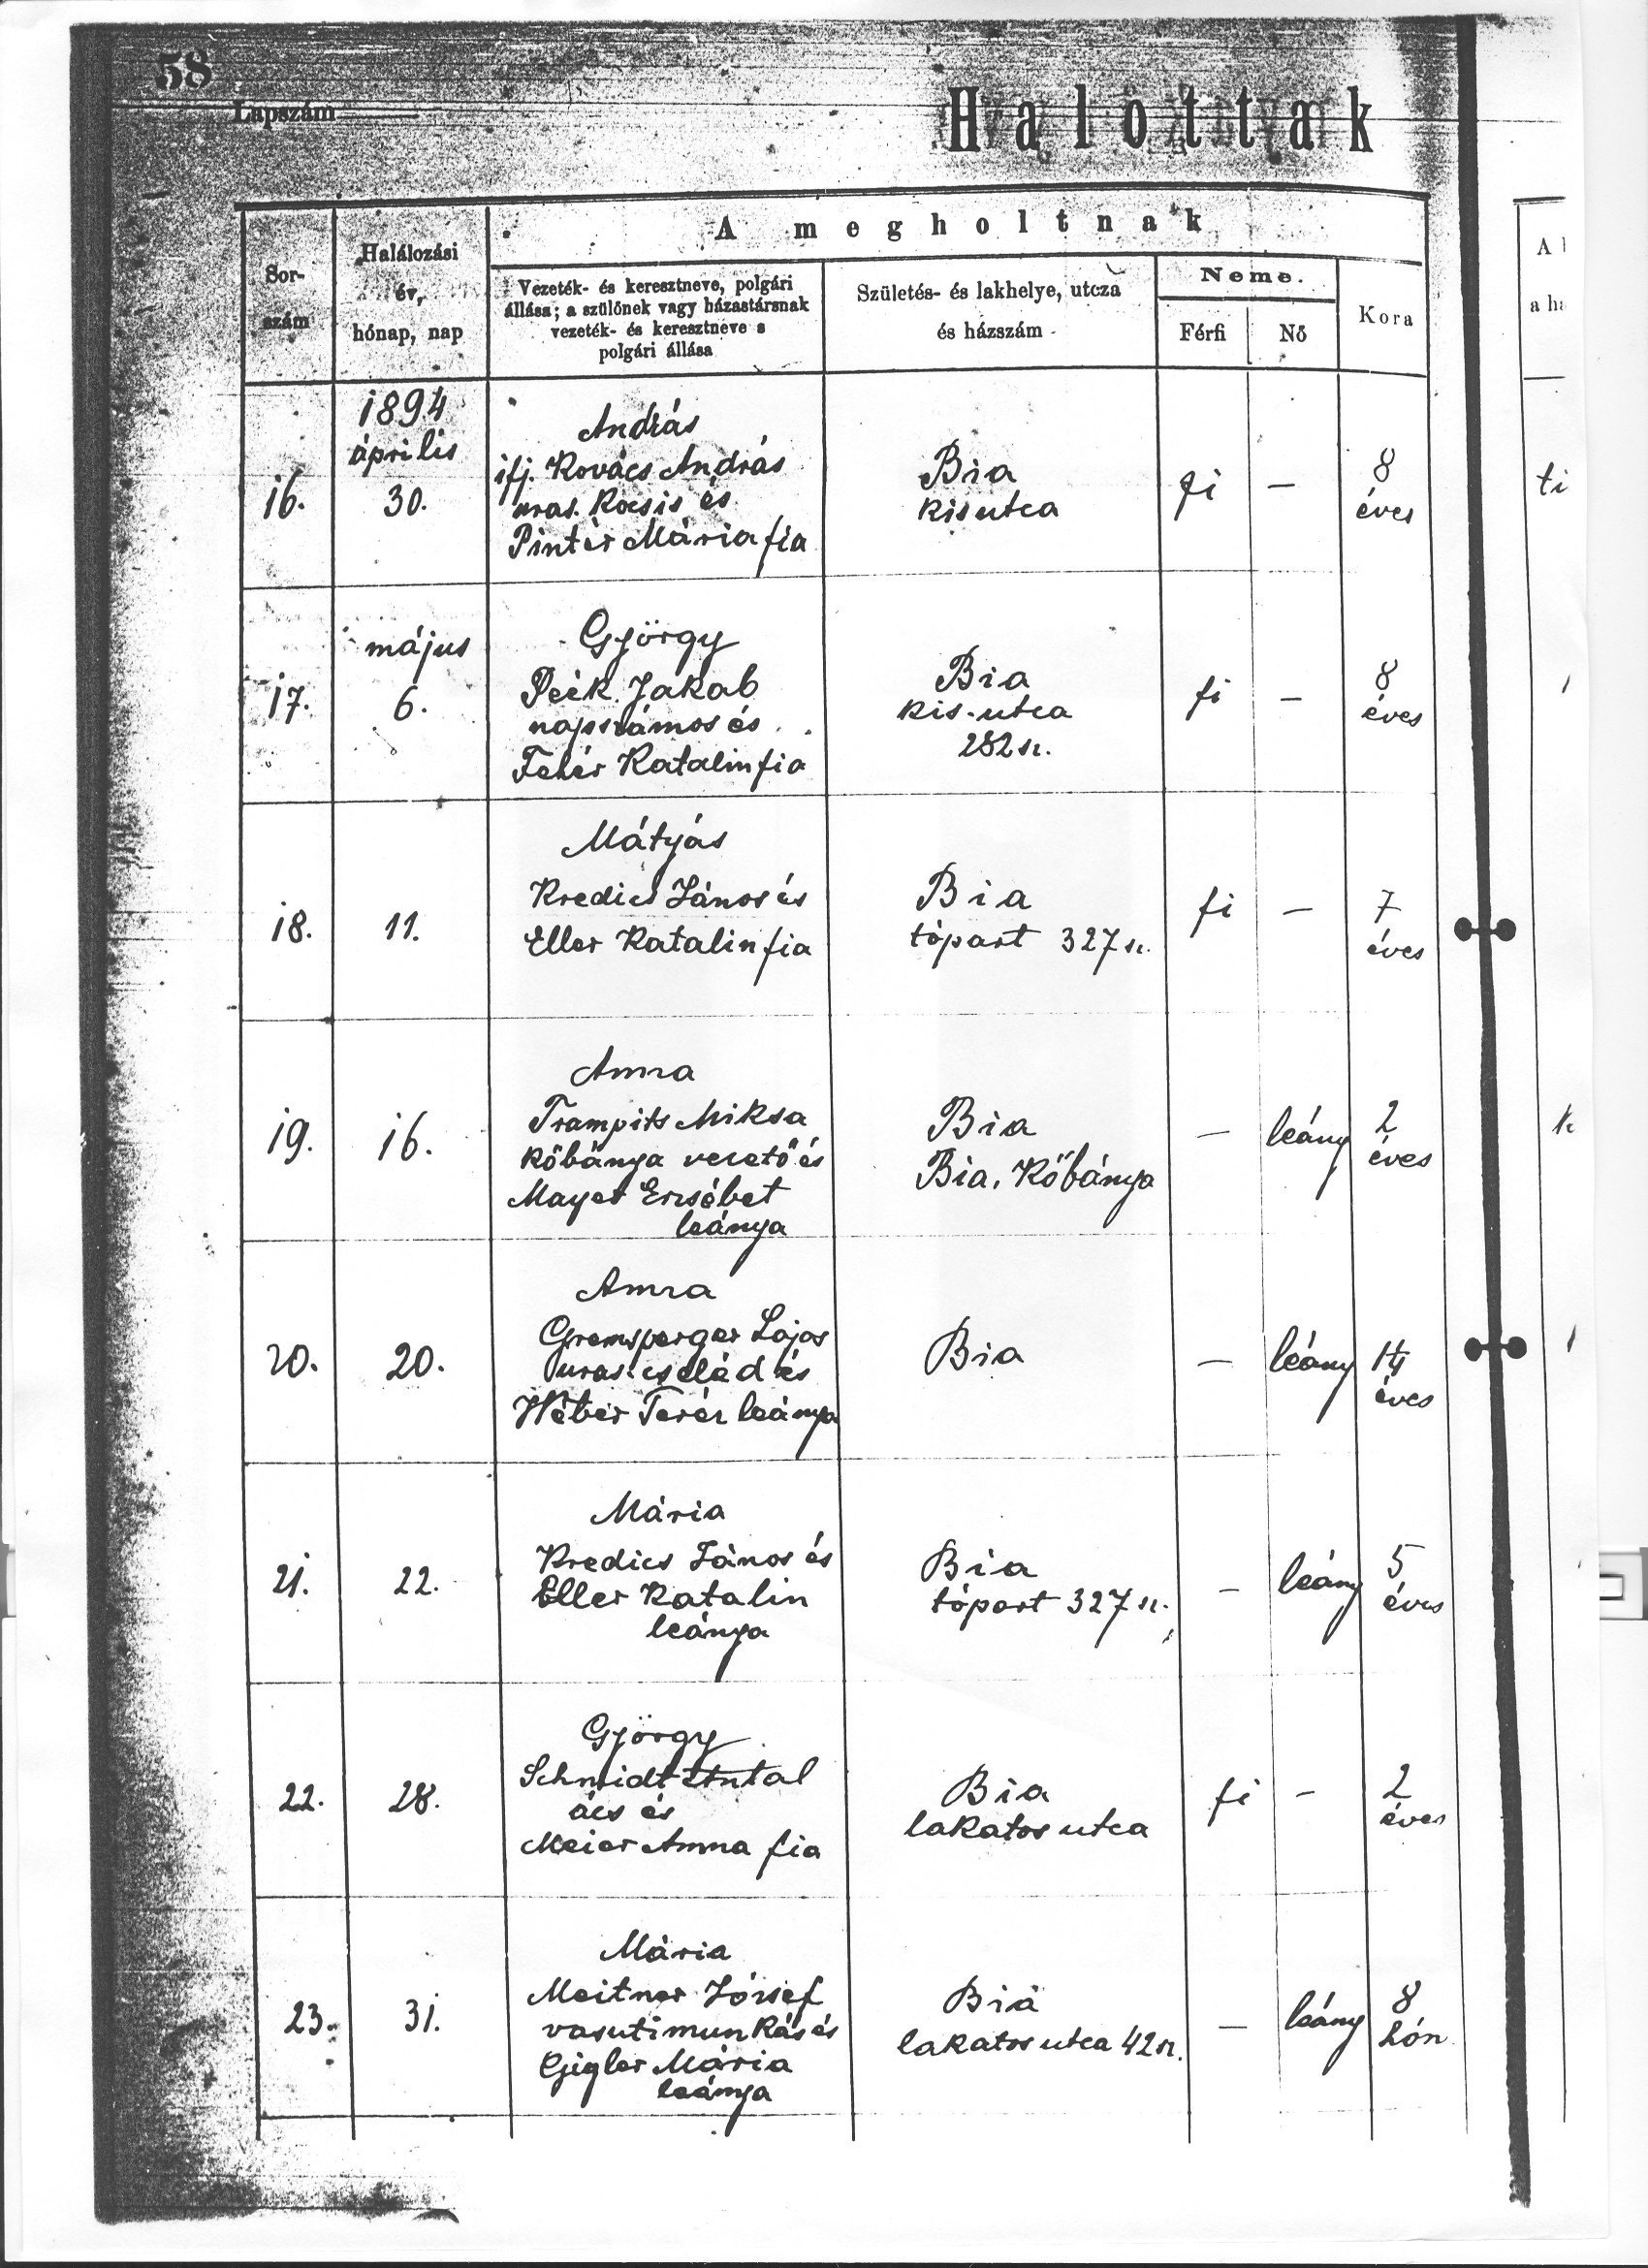 58
Lapszám
Halottak
A megholtnak
Sor-
szám
Halálozási
év,
hónap, nap
Vezeték- és keresztneve, polgári
állása; a szülőnek vagy házastársnak
vezeték- és keresztneve s
polgári állása
Születés- és lakhelye, utcza
és házszám
Neme.
Férfi
Nő
Kora
A
a ha
16.
1894
április
30.
András
ifj. Kovács András
uras. Kocsis és
Pintér Mária fia
Bia
kisutca
fi
—
8
éves
ti
17.
május
6.
György
Peék Jakab
napszámos és
Fehér Katalin fia
Bia
kis-utca
282 sz.
fi
—
8
éves
18.
11.
Mátyás
Kredics János és
Eller Katalin fia
Bia
tópart 327 sz.
fi
—
7
éves
19.
16.
Anna
Trampits Miksa
kőbánya vezető és
Mayer Erzsébet
leánya
Bia
Bia, Kőbánya
—
leány
2
éves
20.
20.
Anna
Gremsperger Lajos
uras. cseléd és
Wéber Teréz leánya
Bia
—
leány
14
éves
21.
22.
Mária
Kredics János és
Eller Katalin
leánya
Bia
tópart 327 sz.
—
leány
5
éves
22.
28.
György
Schmidt Antal
ács és
Meier Anna fia
Bia
lakatos utca
fi
—
2
éves
23.
31.
Mária
Meitner József
vasuti munkás és
Gigler Mária
leánya
Bia
lakatos utca 42 sz.
—
leány
8
hón